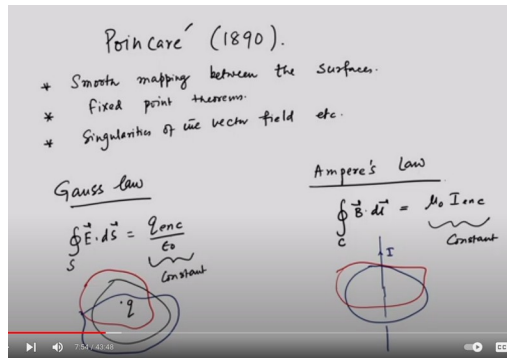 Poincare´ (1890).
* Smooth mapping between the surfaces.
* fixed point theorems.
* Singularities of the vector field etc.
Gauss law
∮S E⃗·dS⃗ = qenc/ε0
Constant
q
Ampere's Law
∮C B⃗·dl⃗ = μ0 Ienc
Constant
I
7:54 / 43:48
CC